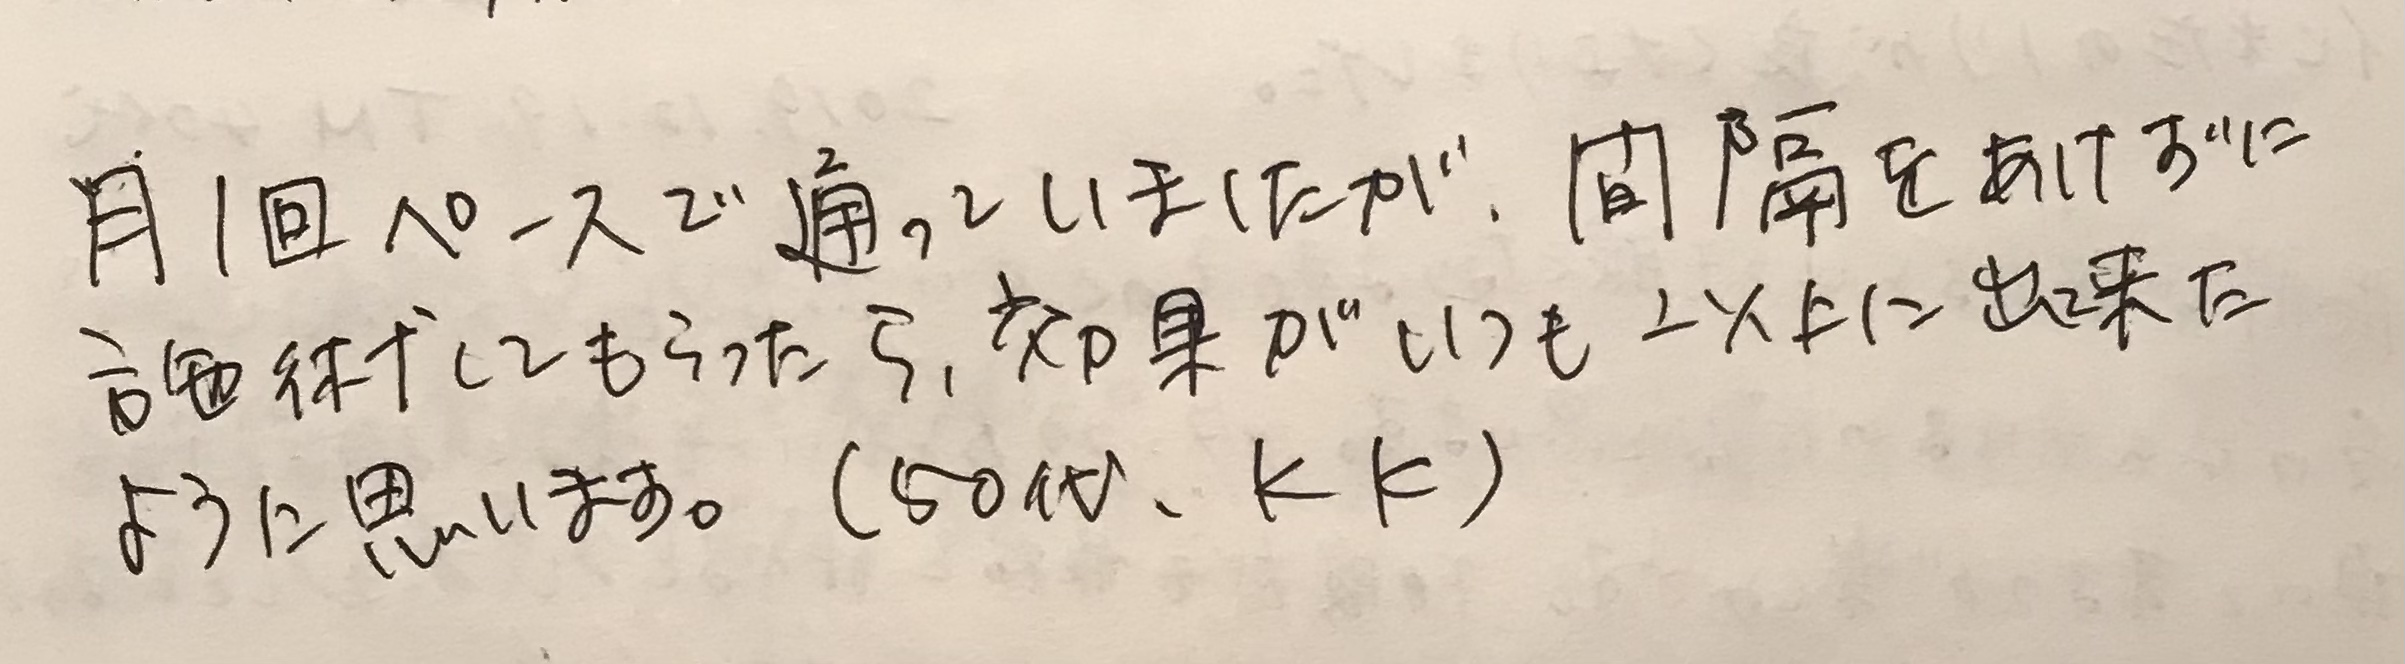 月1回ペースで通っていましたが、間隔をあけずに
施術してもらったら、効果がいつも以上に出来た
ように思います。(50代、KK)